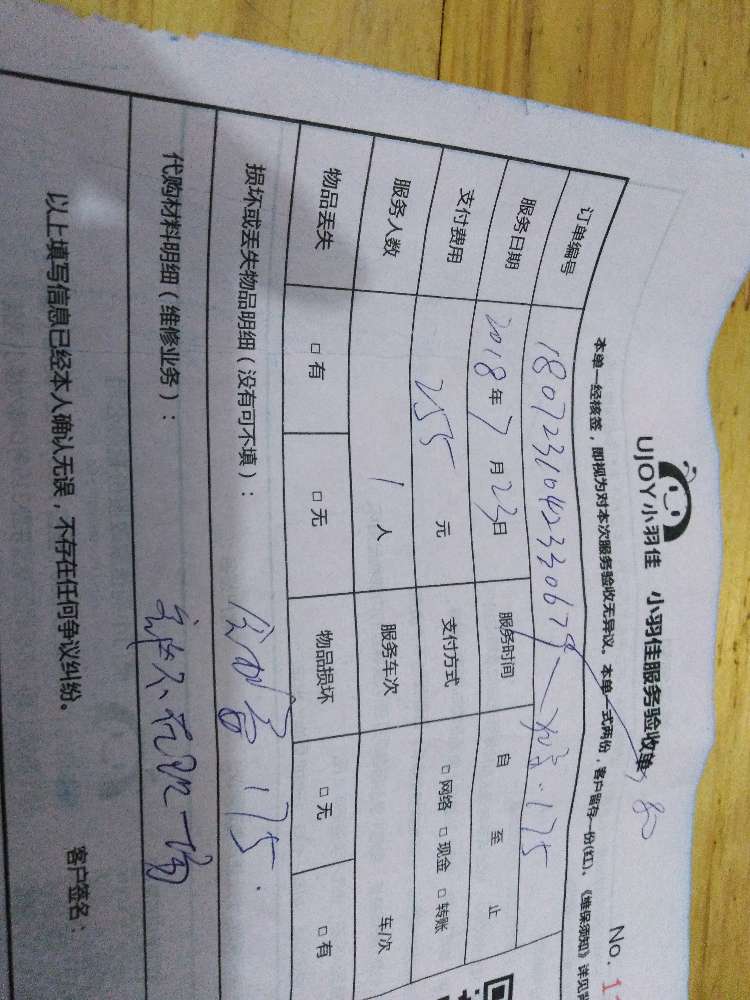 UJOY小羽佳 小羽佳服务验收单
No. 1
本单一经核签，即视为对本次服务验收无异议。本单一式两份，客户留存一份(红)、《维保须知》详见背
订单编号
服务日期 2018年7月23日 服务时间 自 至 止
支付费用 255元 支付方式 □网络 □现金 □转账
服务人数 1人 服务车次 车/次
物品丢失 □有 □无 物品损坏 □无 □有
损坏或丢失物品明细（没有可不填）： 175.
代购材料明细（维修业务）：
以上填写信息已经本人确认无误，不存在任何争议纠纷。 客户签名：